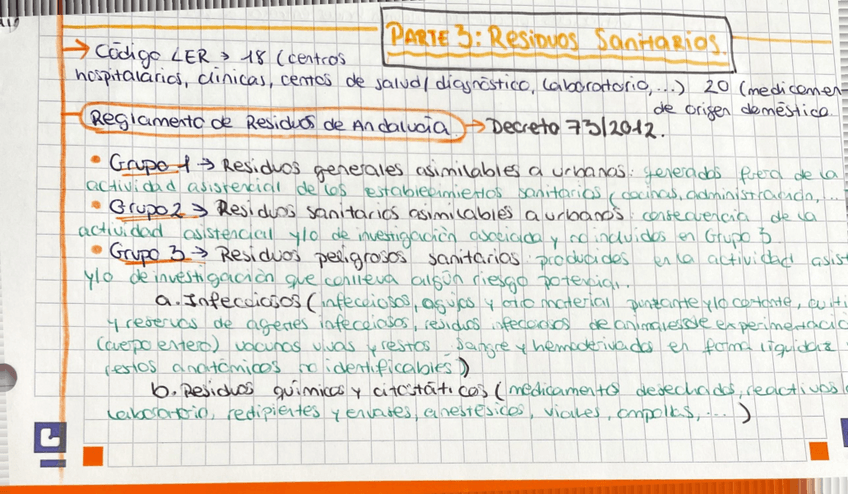 PARTE 3: Residuos Sanitarios.
→ Código LER → 18 (centros
hospitalarios, clínicas, centos de salud/diagnóstico, laboratorio,...) 20 (medicamen-
de origen doméstico.
Reglamento de Residuos de Andalucía → Decreto 73/2012.
• Grupo 1 → Residuos generales asimilables a urbanos: generados fuera de la
actividad asistencial de los establecimientos sanitarios (cocinas, administración,...
• Grupo 2 → Residuos sanitarios asimilables a urbanos consecuencia de la
actividad asistencial y/o de investigación asociada y no incluidos en Grupo 3
• Grupo 3 → Residuos peligrosos sanitarios: producidos en la actividad asist
y/o de investigación que conlleva algún riesgo potencial.
a. Infecciosos (infecciosos, agujas y otro material punzante y/o cortante, culti
y reservas de agentes infecciosos, residuos infecciosos de animales de experimentació
(cuerpo entero) vacunas vivas y restos, sangre y hemoderivados en forma líquida
restos anatómicos no identificables)
b. Residuos químicos y citostáticos (medicamentos desechados, reactivos
laboratorio, recipientes y envases, anestésicos, viales, ampollas,...)